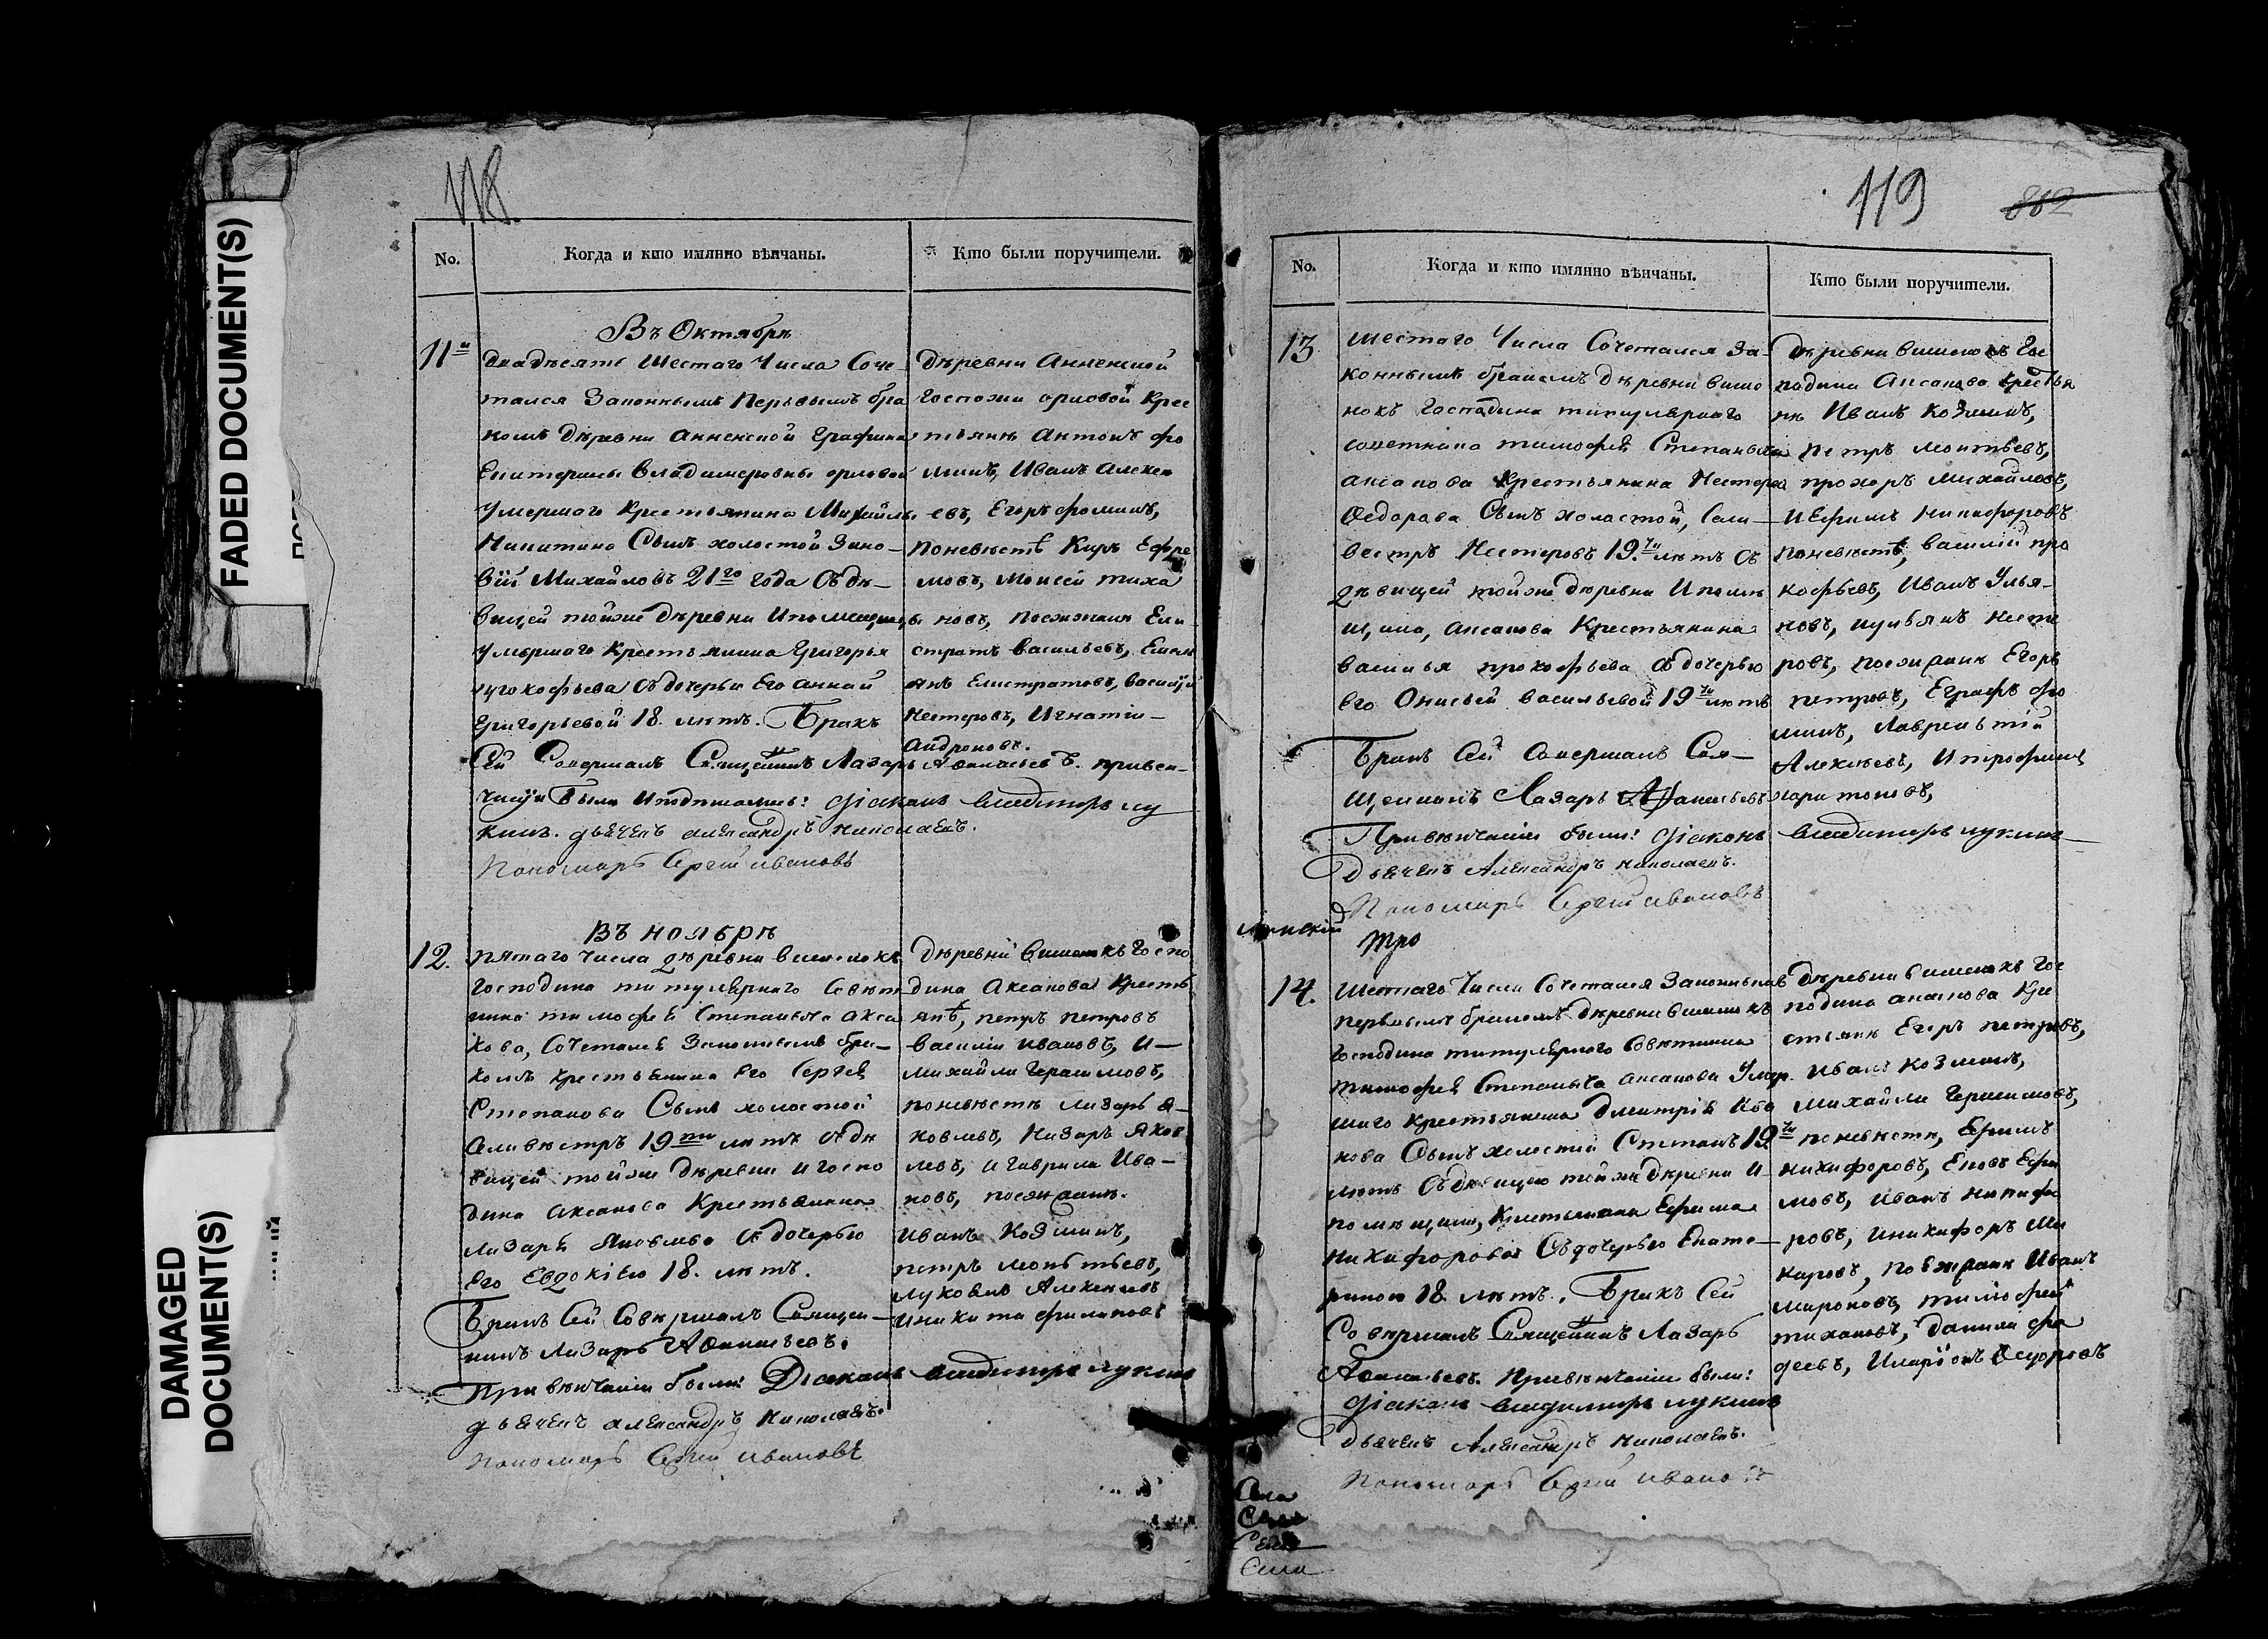 FADED DOCUMENT(S)
DAMAGED
DOCUMENT(S)
118.
No.
Когда и кто имянно вѣнчаны.
Кто были поручители.
Въ Октябрѣ
11и
двадцать Шестаго Числа Соче-
тался Законнымъ Первымъ бра
комъ Деревни Анненской Графини
Екатерины Владимеровны орловой
Умершаго Крестьянина Михайлы
Никитина Сынъ холостой Зино-
вій Михайловъ 21го года Съ дѣ-
вицей тойже деревни И помещицы
умершаго Крестьянина Григорья
прокофьева Съ дочерью Его Анной
Григорьевой 18. летъ. Бракъ
Сей Совершалъ Священникъ Лазарь Афанасьевъ. при вен-
чаніи были и подписались: діаконъ владимиръ лу
кинъ. дьячекъ александръ николаевъ.
Пономарь Сергій ивановъ
деревни Анненской
Госпожи орловой Крес
тьяне Антонъ фо
минъ, Иванъ алексе
евъ, Егоръ фоминъ,
поневѣстѣ Киръ Ефре
мовъ, Моисей тиха
новъ, поезжане Ели
стратъ васильевъ, Емель
янъ Елистратовъ, василій
Нестеровъ, Игнатій
Андроновъ.
Въ ноябрѣ
12.
пятаго числа деревни вишенокъ
Господина титулярнаго Совет
ника тимофея Степаныча акса
кова, Сочетался Законнымъ бра-
комъ крестьянина Его Сергея
Степанова Сынъ холостой
Селивестръ 19ти летъ Съ дѣ
вицей тойже деревни и госпо
дина аксакова Крестьянина
Лазаря Яковлева Съ дочерью
Его Евдокіею 18. летъ.
Бракъ Сей Совершалъ Священ-
никъ Лазарь Афанасьевъ.
При венчаніи были: Діаконъ владимиръ лукинъ
дьячекъ александръ Николаевъ.
Пономарь Сергій ивановъ
Деревни вишенокъ Госпо
дина Аксакова Кресть
янѣ, петръ петровъ
василій ивановъ, и-
михайла Герасимовъ,
поневестѣ лазарь я-
ковлевъ, Назаръ Яков
левъ, и гаврила Ива-
новъ, поезжанѣ.
Иванъ Козминъ,
петръ леонтьевъ,
луковъ Алексеевъ
и никита филиповъ
119
882
No.
Когда и кто имянно вѣнчаны.
Кто были поручители.
13
Шестаго Числа Сочетался За-
коннымъ бракомъ деревни више
нокъ Господина титулярнаго
Советника тимофея Степаныча
аксакова Крестьянина Нестера
Федорова Сынъ холостой, Сели-
вестръ Нестеровъ 19.ти летъ Съ
девицей тойже деревни И поме
щика, аксакова Крестьянина
василья прокофьева Съ дочерью
Его Анисьей васильевой 19ти летъ
Бракъ Сей Совершалъ Свя-
щенникъ Лазарь Афанасьевъ
При венчаніи были: діаконъ владимиръ лукинъ
дьячекъ Александръ николаевъ.
Пономарь Сергій ивановъ
Деревни вишенокъ Гос
подина Аксакова крестья
не Иванъ Козминъ,
петръ леонтьевъ,
прохоръ Михайловъ,
и Ефимъ Никифоровъ
поневестѣ, василій про
кофьевъ, Иванъ Улья-
новъ, Несте
ровъ, поезжане Егоръ
петровъ, Еграфъ фо
минъ, Лаврентій
Алексеевъ, И трофимъ
харитоновъ,
14.
Шестаго Числа Сочетался Законнымъ
первымъ бракомъ деревни вишенокъ
Господина титулярнаго Советника
тимофея Степаныча аксакова Умер
шаго крестьянина Дмитрія Ива
нова Сынъ холостой Степанъ 19ти
летъ Съ девицею тойже деревни И-
помещика, Крестьянина Ефима
Никифорова Съ дочерью Екате-
риною 18. летъ. Бракъ Сей
Совершалъ Священникъ Лазарь
Афанасьевъ. При венчаніи были:
діаконъ владимиръ лукинъ
дьячекъ Александръ николаевъ.
Пономарь Сергій ивановъ
деревни вишенокъ Гос
подина аксакова Кре
стьяне Егоръ петровъ,
Иванъ Козминъ,
Михайла Герасимовъ,
поневесте, Ефимъ
никифоровъ, Ефи
мовъ, Иванъ Никифо
ровъ, и никифоръ Ма
каровъ, поезжане Иванъ
Мироновъ, тимофей
тихановъ, данила фа
деевъ, Иларіонъ Федоровъ
Села
Села
Села
Села